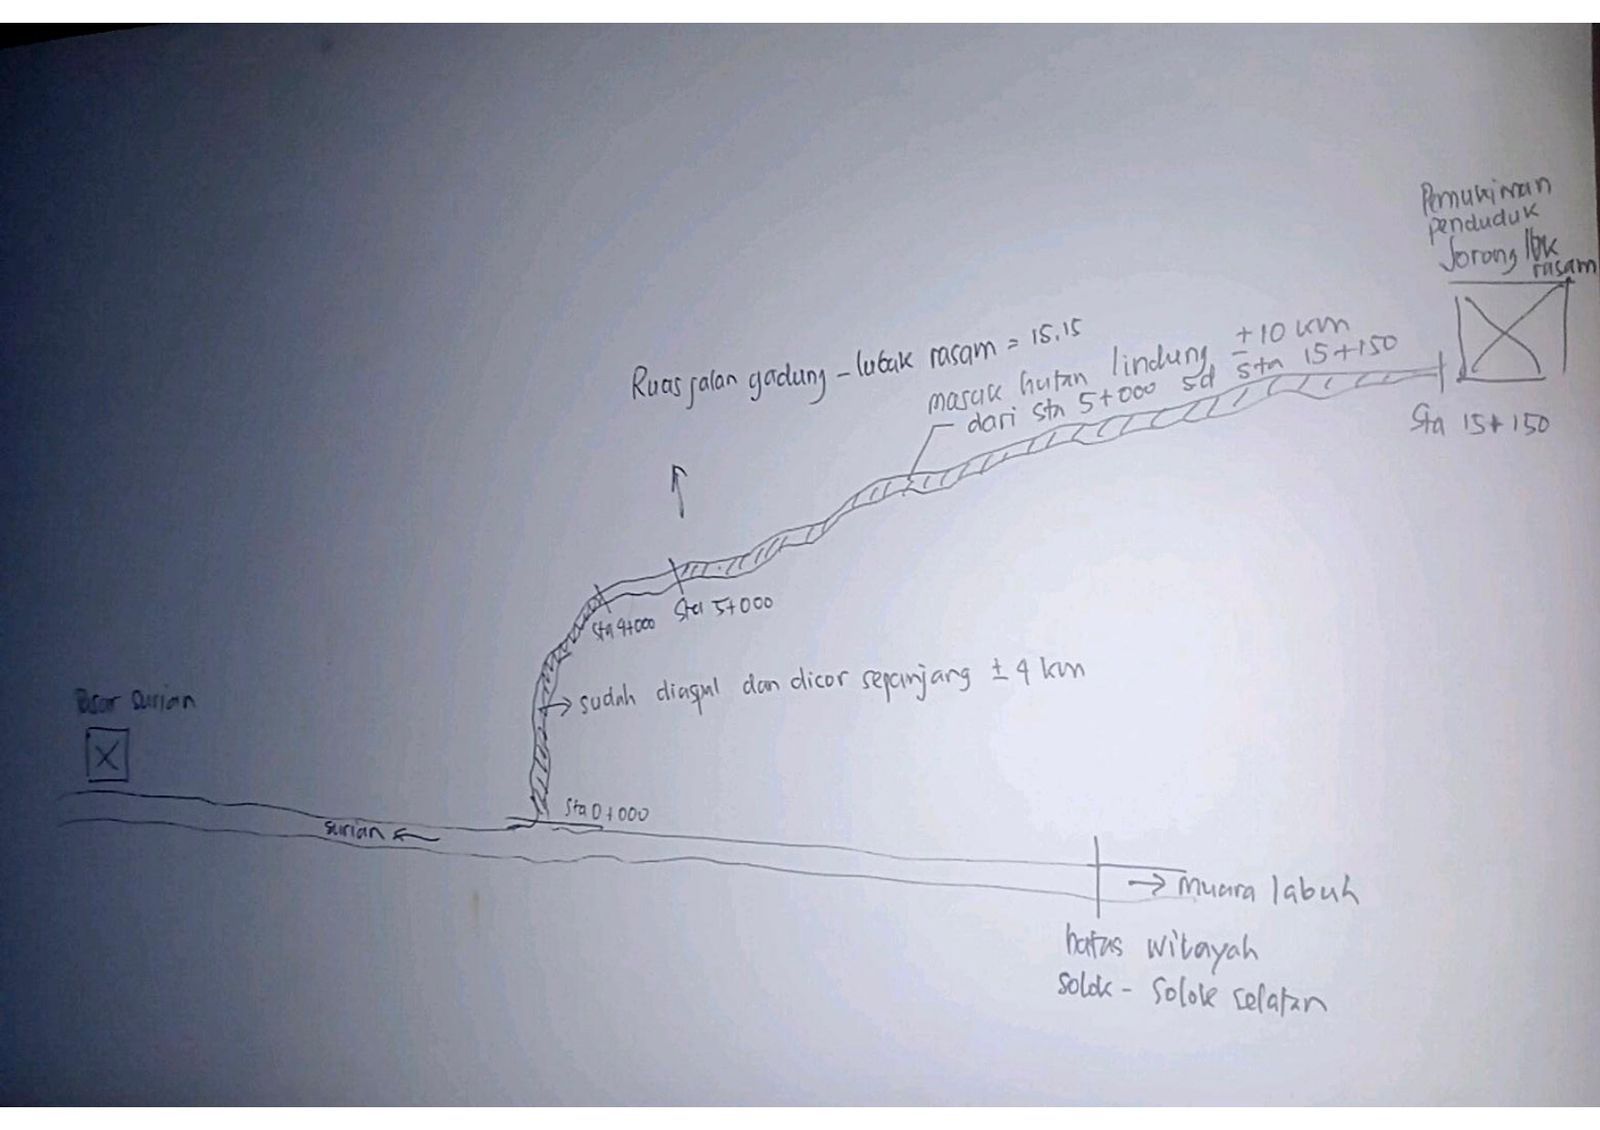 Pemukiman
penduduk
Jorong lbk
rasam
Ruas jalan gadung - lubuk rasam = 15.15
masuk hutan lindung ± 10 km
dari Sta 5+000 sd Sta 15+150
Sta 15+150
Sta 5+000
Sta 4+000
sudah diaspal dan dicor sepanjang ± 4 km
Pasar surian
Sta 0+000
surian
muara labuh
batas wilayah
Solok - Solok Selatan